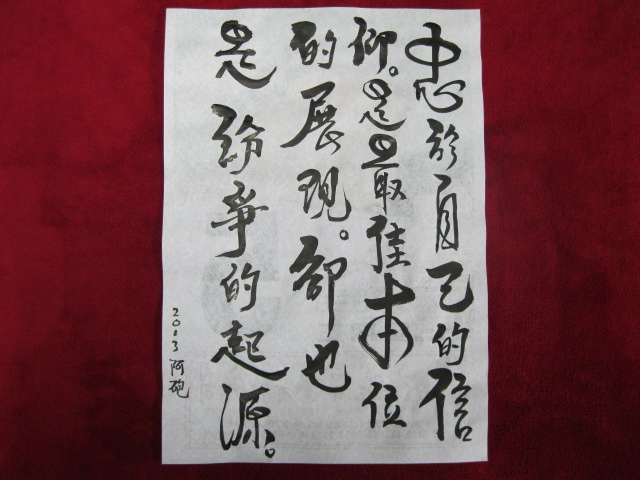 忠於自己的信
仰。是最佳本位
的展現。卻也
是紛爭的起源。
2013 阿砲